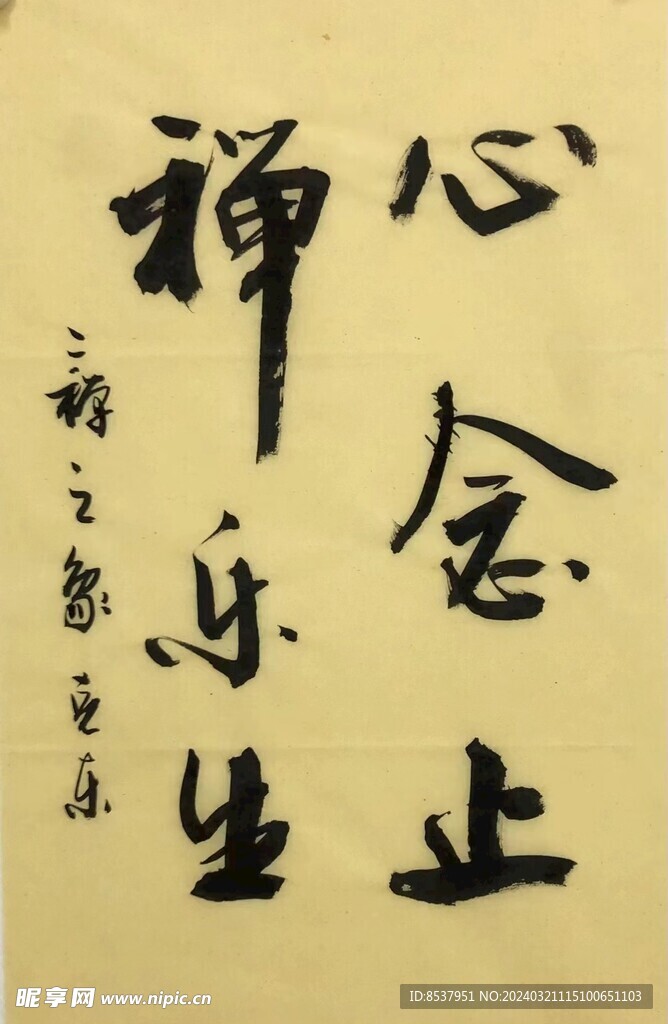 心念止
禅乐生
二禅之象 克东
昵享网 www.nipic.cn
ID:8537951 NO:20240321115100651103